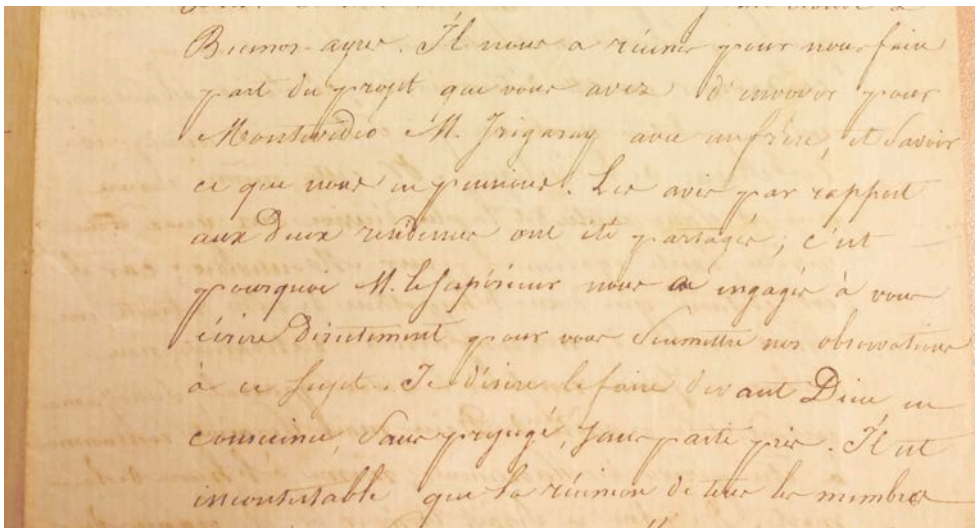 Buenos-ayres. Il nous a réunis pour nous faire
part du projet que vous avez d'envoyer pour
Montevideo M. Irigaray avec un frère, et savoir
ce que nous en pensions. Les avis par rapport
aux deux residences ont été partagés; c'est
pourquoi M. le Supérieur nous a engagés à vous
écrire directement pour vous soumettre nos observations
à ce sujet. Je désire le faire devant Dieu en
conscience, sans prejugé, sans parti pris. Il est
incontestable que la réunion de tous les membres